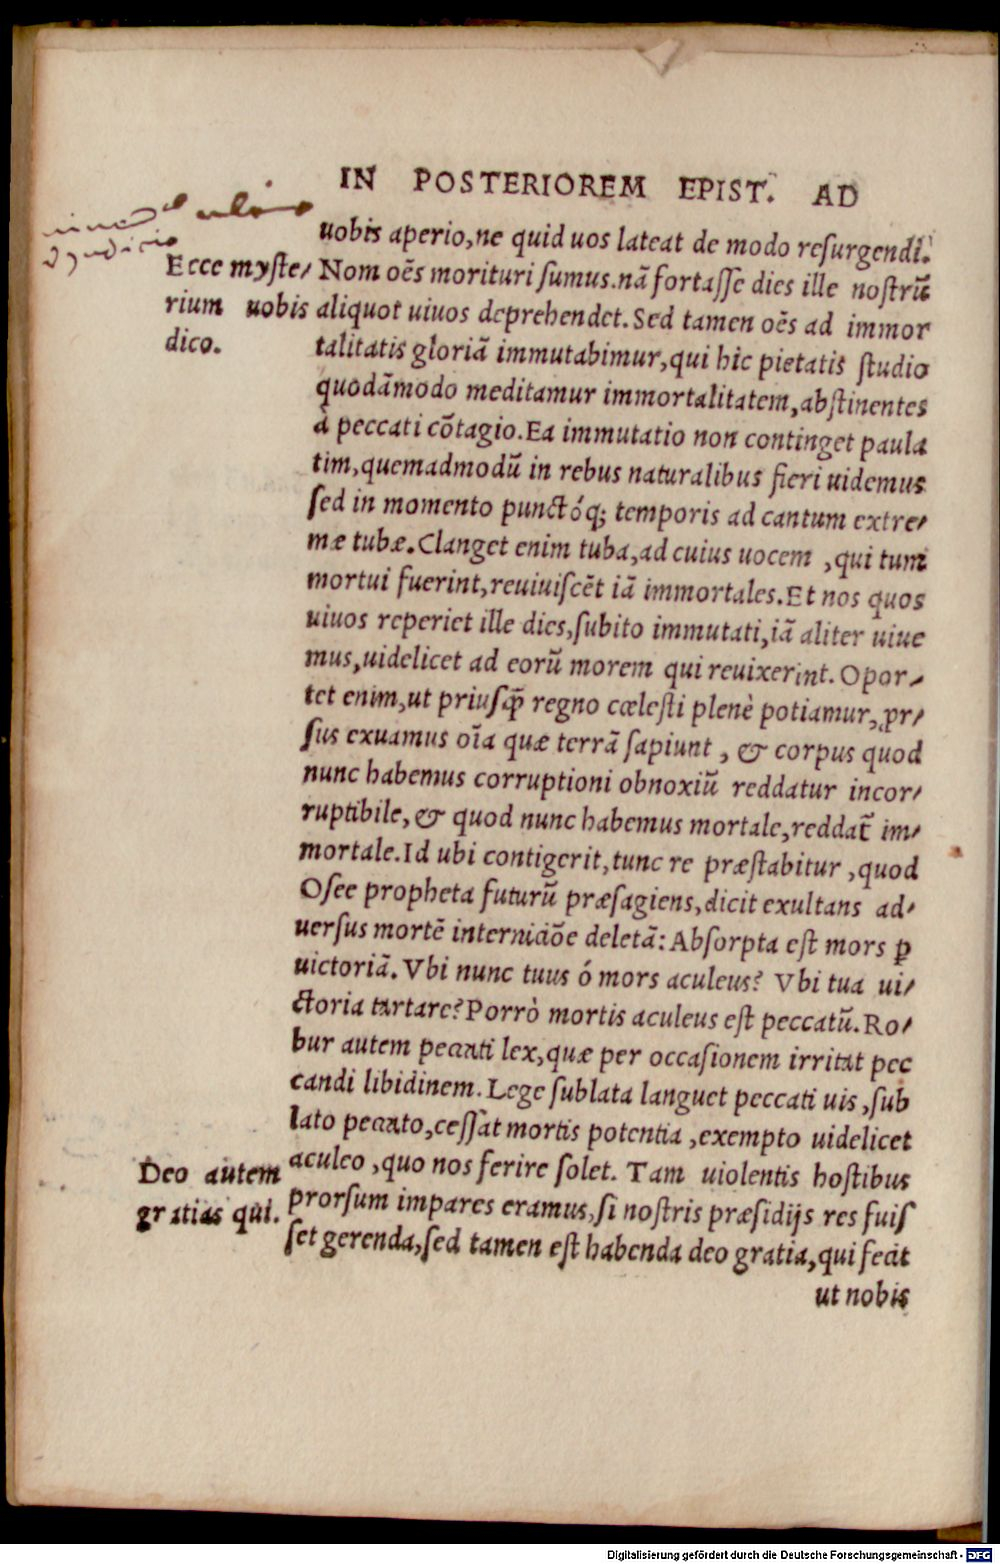 IN POSTERIOREM EPIST. AD
uobis aperio, ne quid uos lateat de modo resurgendi.
Ecce myste/
rium uobis
dico.
Nom oẽs morituri sumus. nã fortasse dies ille nostrũ
aliquot uiuos deprehendet. Sed tamen oẽs ad immor
talitatis gloriã immutabimur, qui hic pietatis studio
quodãmodo meditamur immortalitatem, abstinentes
à peccati cõtagio. Ea immutatio non continget paula
tim, quemadmodũ in rebus naturalibus fieri uidemus
sed in momento punctóq; temporis ad cantum extre/
mæ tubæ. Clanget enim tuba, ad cuius uocem , qui tum
mortui fuerint, reuiuiscẽt iã immortales. Et nos quos
uiuos reperiet ille dies, subito immutati, iã aliter uiue
mus, uidelicet ad eorũ morem qui reuixerint. Opor/
tet enim, ut priusꝙ̃ regno cœlesti plenè potiamur, ꝓr/
sus exuamus oĩa quæ terrã sapiunt , & corpus quod
nunc habemus corruptioni obnoxiũ reddatur incor/
ruptibile, & quod nunc habemus mortale, reddat̃ im/
mortale. Id ubi contigerit, tunc re præstabitur , quod
Osee propheta futurũ præsagiens, dicit exultans ad/
uersus mortẽ interniciõe deletã: Absorpta est mors ꝑ
uictoriã. Vbi nunc tuus ó mors aculeus? Vbi tua ui/
ctoria tartare? Porrò mortis aculeus est peccatũ. Ro/
bur autem peccati lex, quæ per occasionem irritat pec
candi libidinem. Lege sublata languet peccati uis , sub
lato peccato, cessat mortis potentia , exempto uidelicet
aculeo , quo nos ferire solet. Tam uiolentis hostibus
Deo autem
gratias qui.
prorsum impares eramus, si nostris præsidijs res fuis
set gerenda, sed tamen est habenda deo gratia, qui fecit
ut nobis
Digitalisierung gefördert durch die Deutsche Forschungsgemeinschaft - DFG